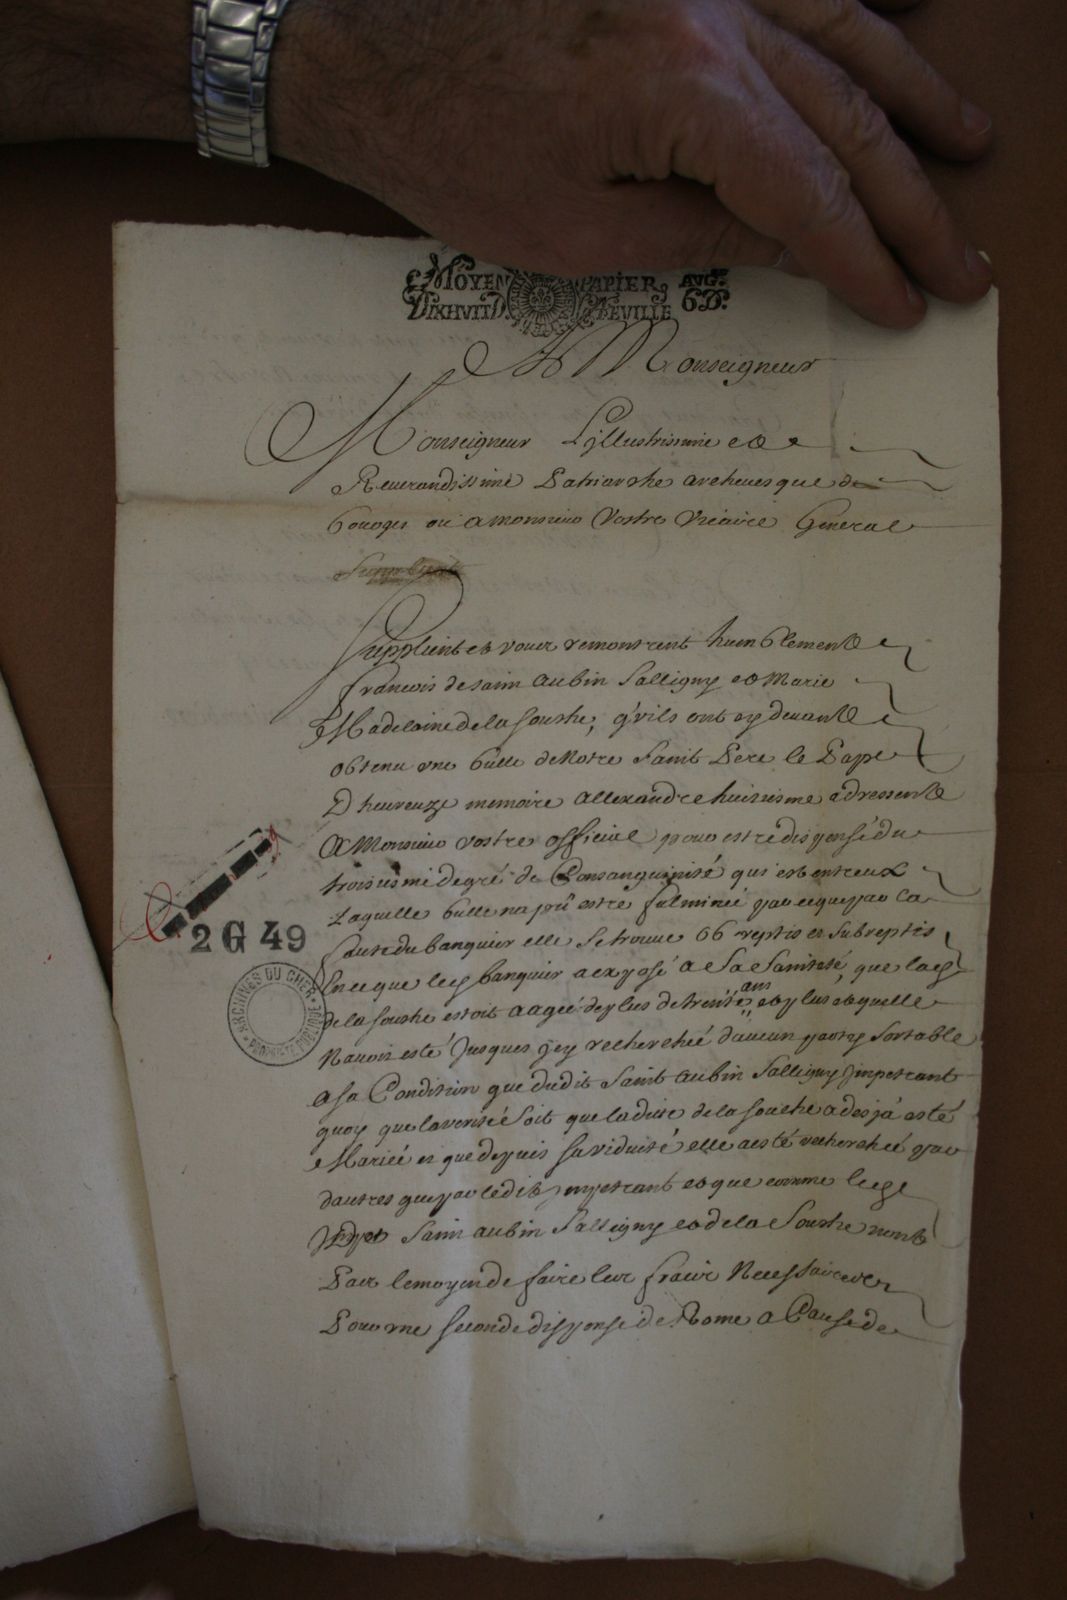 MOYEN PAPIER AVGon
DIXHVIT D. LE FEVILLE 6D.
A Monseigneur
Monseigneur Lyllustrissime et
Reverandissime Patriarche archevesque de
bourges ou a monsieur vostre vicaire General
Supplient et vous remontrent humblement
francois de saint aubin Salligny et Marie
Madelaine de la Souche, qu'ils ont cy devant
obtenu une bulle de Nostre Saint Pere le Pape
D heureuze memoire allexandre huitiesme adressente
A Monsieur vostre official pour estre dispensé du
troisiesme degré de Consanguinité qui est entreux
Laquelle bulle na pû estre fulminée par ce que par la
faute du banquier elle se trouve obreptis et subreptis
En ce que le banquier a exposé a Sa Sainteté, que la
de la souche estoit aagée de plus de trente ans et plus et quelle
Navoit esté Jusques jcy recherchée daucun party Sortable
a sa Condition que dudit Saint aubin Salligny Jmpetrant
quoy que la verité soit que la dite de la souche a desja esté
Mariée et que depuis sa viduité elle a esté recherchée par
dautres que par ledit jmpetrant et que comme
Saint aubin Salligny et de la Souche nont
Pas le moyen de faire les fraix Necessaires
Pour une seconde dispense de Rome a Cause de
2 G 49
ARCHIVES DU CHER
PROPRIÉTÉ PUBLIQUE